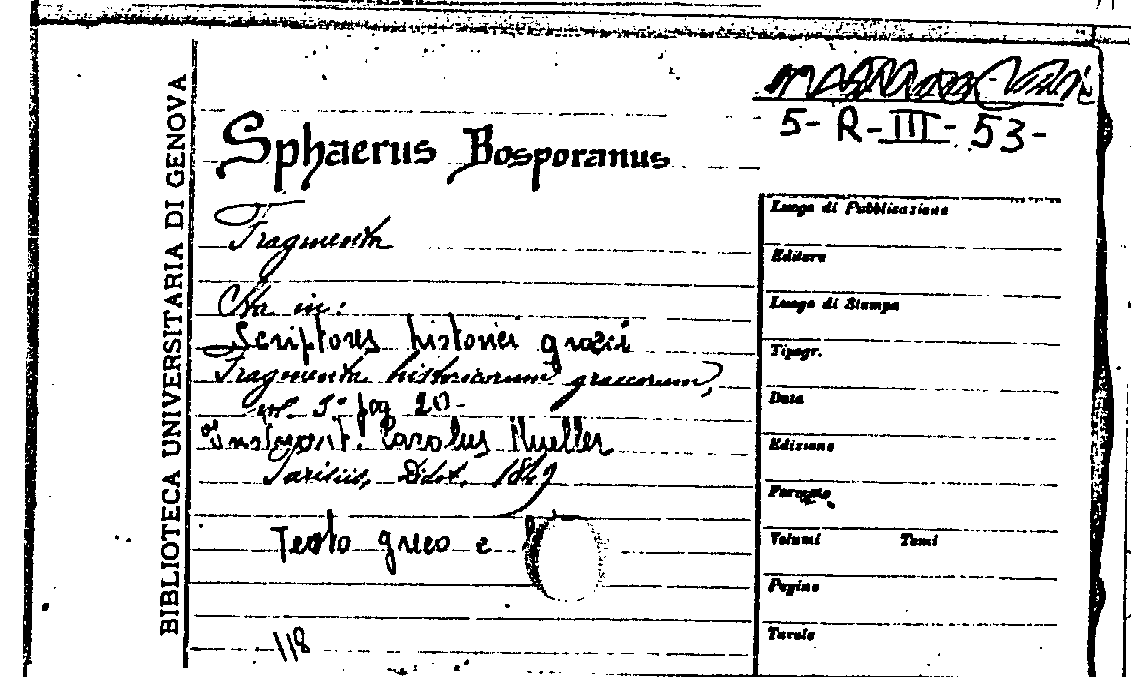 BIBLIOTECA UNIVERSITARIA DI GENOVA
5-R-III-53-
Sphaerus Bosporanus
Fragmenta
Sta in:
Scriptores historici graeci
Fragmenta historicorum graecorum,
vol. 3° pag 20-
Carolus Mueller
Parisiis, Didot, 1849
Testo greco e
118
Luogo di Pubblicazione
Editore
Luogo di Stampa
Tipogr.
Data
Edizione
Formato
Volumi Tomi
Pagine
Tavole